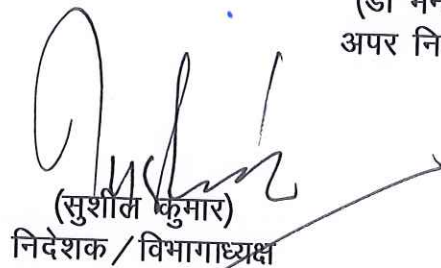 (डॉ
अपर
(सुशील कुमार)
निदेशक / विभागाध्यक्ष